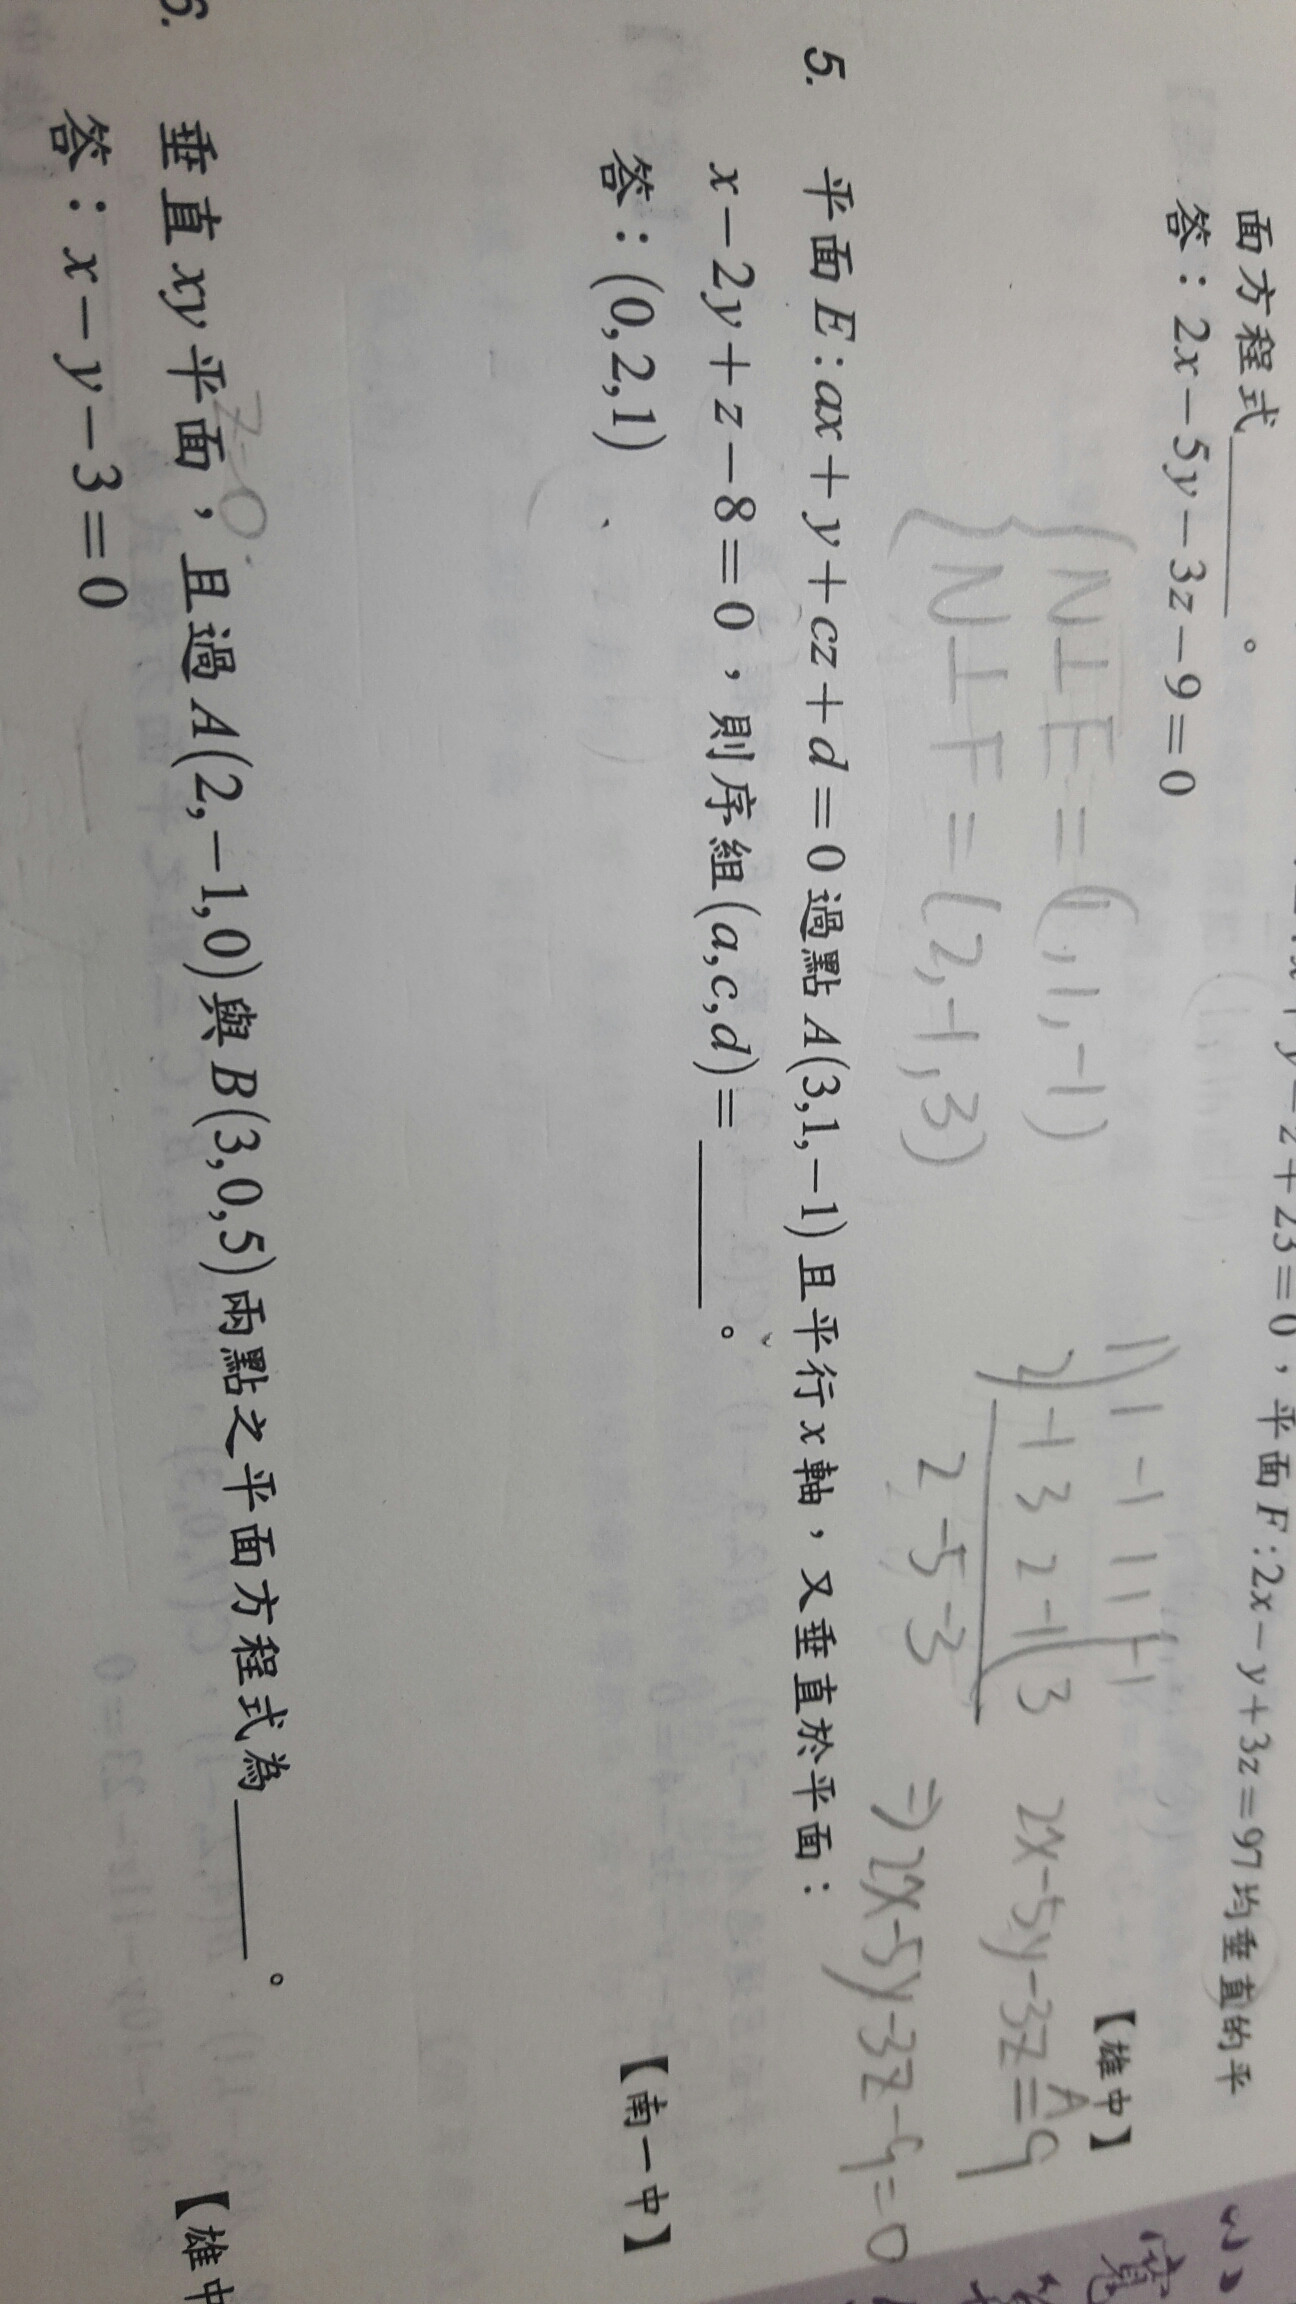 y－z＋23＝0，平面F:2x－y＋3z＝97均垂直的平
面方程式______。
【雄中】
答：2x－5y－3z－9＝0
{N⊥E=(1,1,-1)
N⊥F=(2,-1,3)
1)1 -1 1 1 -1
2)-1 3 2 -1(3
2 -5 -3
2x-5y-3z=9
A
⇒2x-5y-3z-9=0
5. 平面E:ax＋y＋cz＋d＝0過點A(3,1,－1)且平行x軸，又垂直於平面：
x－2y＋z－8＝0，則序組(a,c,d)＝______。
【南一中】
答：(0,2,1)
z=0
6. 垂直xy平面，且過A(2,－1,0)與B(3,0,5)兩點之平面方程式為______。
【雄中
答：x－y－3＝0